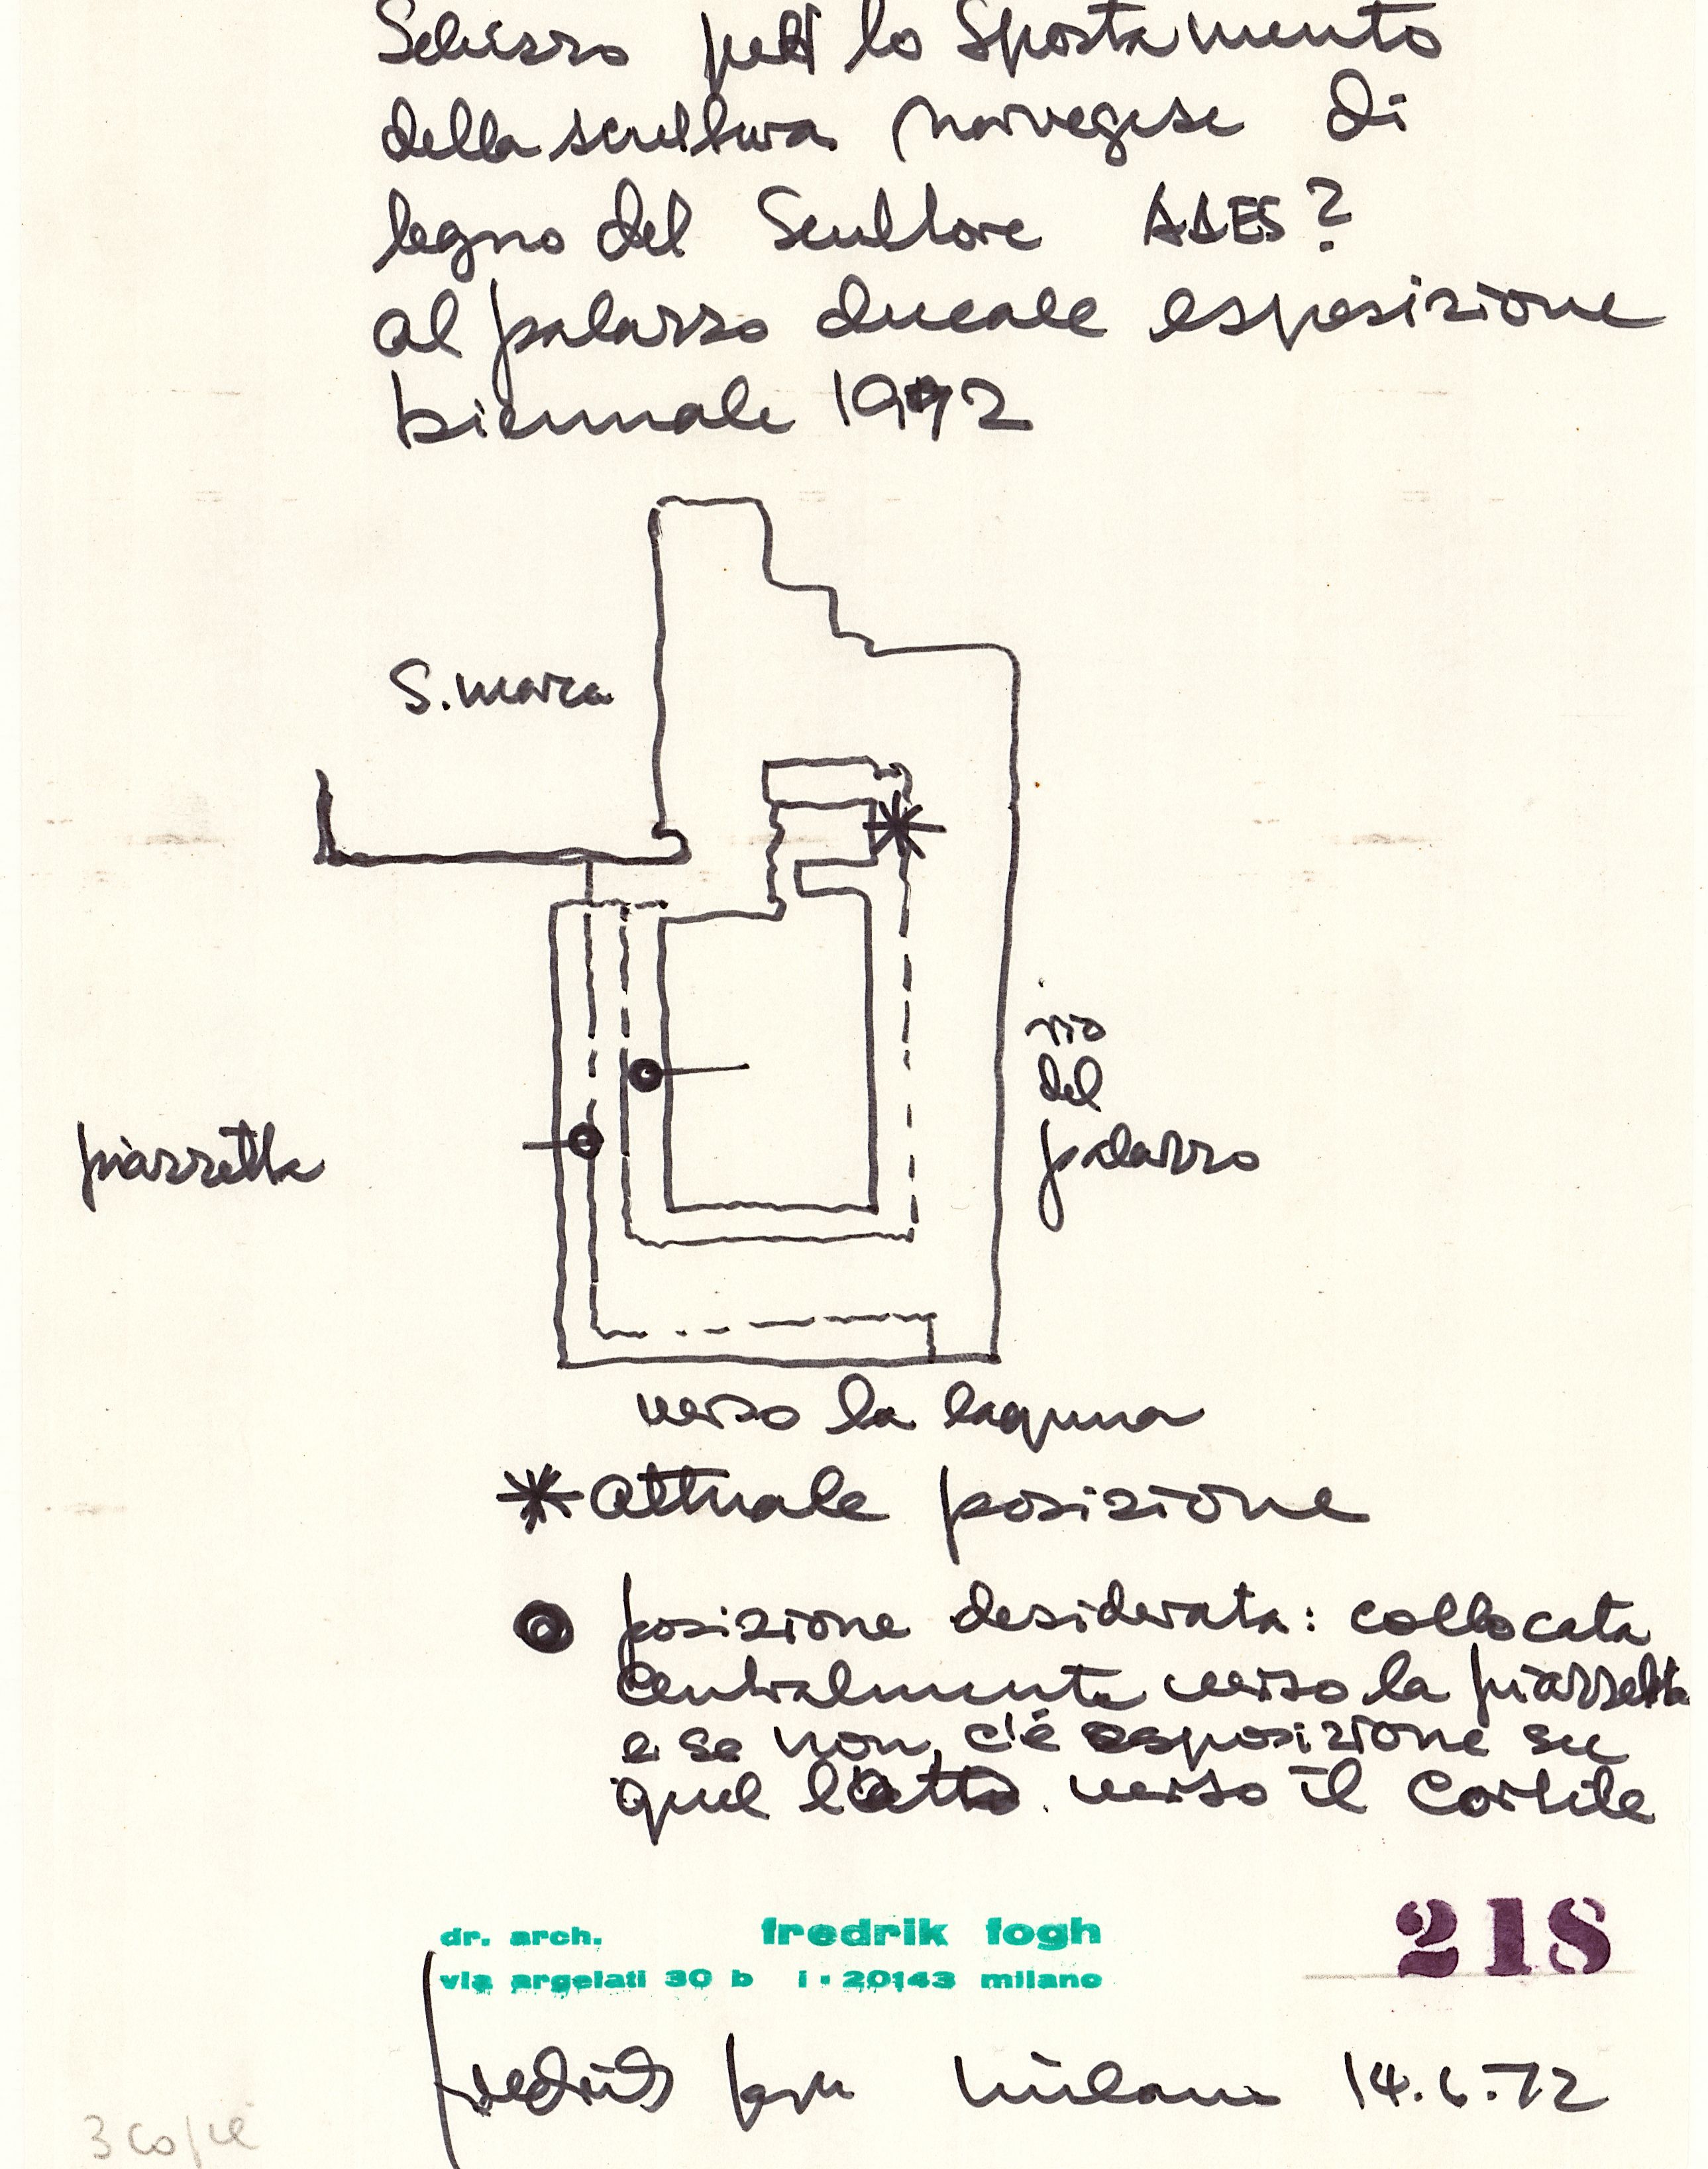 Schizzo per lo spostamento
della scultura norvegese di
legno del Scultore AAES?
al palazzo ducale esposizione
biennale 1972
S. marco
piazzetta
rio
del
palazzo
verso la laguna
attuale posizione
posizione desiderata: collocata
centralmente verso la piazzetta
e se non c'è esposizione su
quel latto verso il cortile
dr. arch. fredrik fogh
via argelati 30 b i - 20143 milano
218
fredrik fogh Milano 14.6.72
3 copie